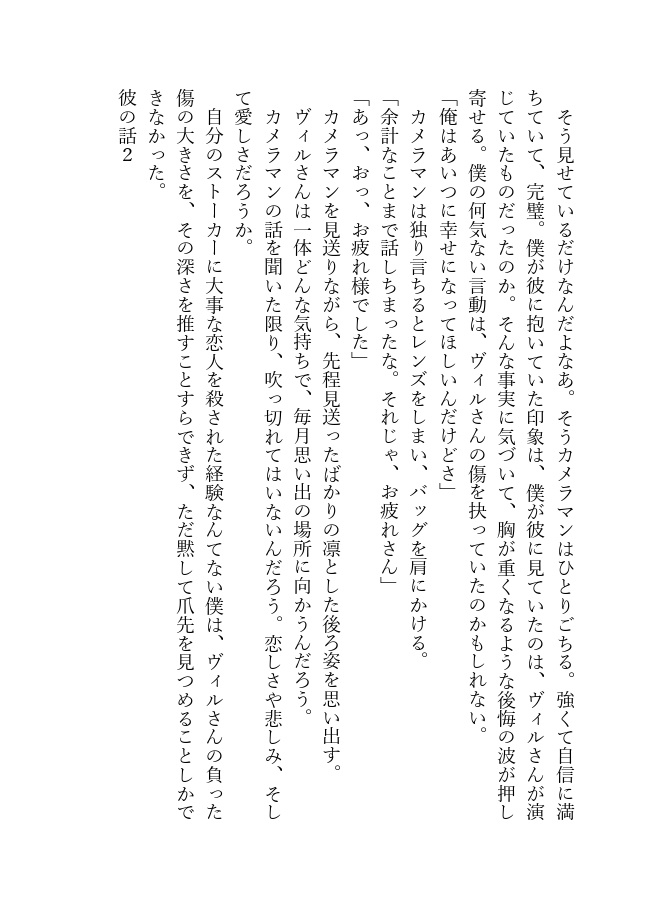 そう見せているだけなんだよなあ。そうカメラマンはひとりごちる。強くて自信に満
ちていて、完璧。僕が彼に抱いていた印象は、僕が彼に見ていたのは、ヴィルさんが演
じていたものだったのか。そんな事実に気づいて、胸が重くなるような後悔の波が押し
寄せる。僕の何気ない言動は、ヴィルさんの傷を抉っていたのかもしれない。
「俺はあいつに幸せになってほしいんだけどさ」
カメラマンは独り言ちるとレンズをしまい、バッグを肩にかける。
「余計なことまで話しちまったな。それじゃ、お疲れさん」
「あっ、おっ、お疲れ様でした」
カメラマンを見送りながら、先程見送ったばかりの凛とした後ろ姿を思い出す。
ヴィルさんは一体どんな気持ちで、毎月思い出の場所に向かうんだろう。
カメラマンの話を聞いた限り、吹っ切れてはいないんだろう。恋しさや悲しみ、そし
て愛しさだろうか。
自分のストーカーに大事な恋人を殺された経験なんてない僕は、ヴィルさんの負った
傷の大きさを、その深さを推すことすらできず、ただ黙して爪先を見つめることしかで
きなかった。
彼の話２